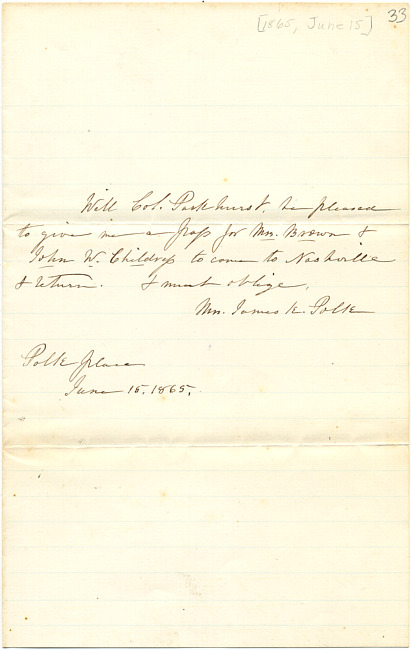 [1865, June 15]
33
Will Col. Parkhurst, be pleased
to give me a pass for Mrs. Brown &
John W. Childress to come to Nashville
& return. & much oblige,
Mrs. James K. Polk
Polk place
June 15. 1865.